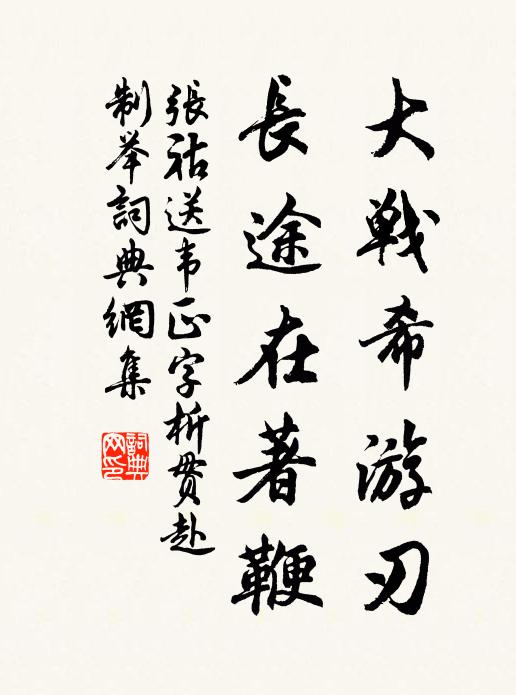 大戰希游刃
長途在著鞭
張祜送韦正字析贯赴
制举詞典網集
詞典
网印